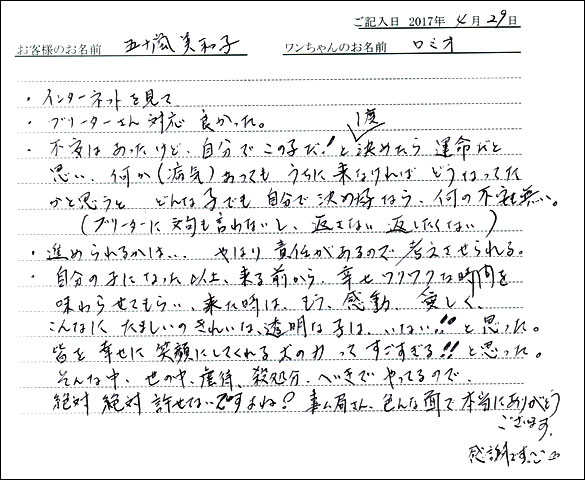 ご記入日 2017年 4月 29日
お客様のお名前 五十嵐 美和子 ワンちゃんのお名前 ロミオ
・インターネットを見て
・ブリーターさん対応 良かった。
・不安はあったけど、自分でこの子だ!!と1度決めたら 運命だと
思い、何か(病気)あっても うちに来なければ どうなってた
かと思うと どんな子でも 自分で決め好なら、何の不安も無い。
(ブリーダーに文句も言わないし、返さない 返したくない)
・進められるかは... やはり 責任があるので 考えさせられる。
・自分の子になった以上、来る前から、幸せフワフワな時間を
味わらせてもらい、来た時は、もう、感動、愛しく、
こんなに たましいのきれいな、透明な子は、いない!!と思った。
皆を 幸せに 笑顔にしてくれる 犬の力 って すごすぎる!!と思った。
そんな中、世の中、虐待、殺処分、へいきで やってるので、
絶対 絶対 許せないですよね? 事ム局さん、色んな面で 本当にありがとう
ございます。
感謝です。